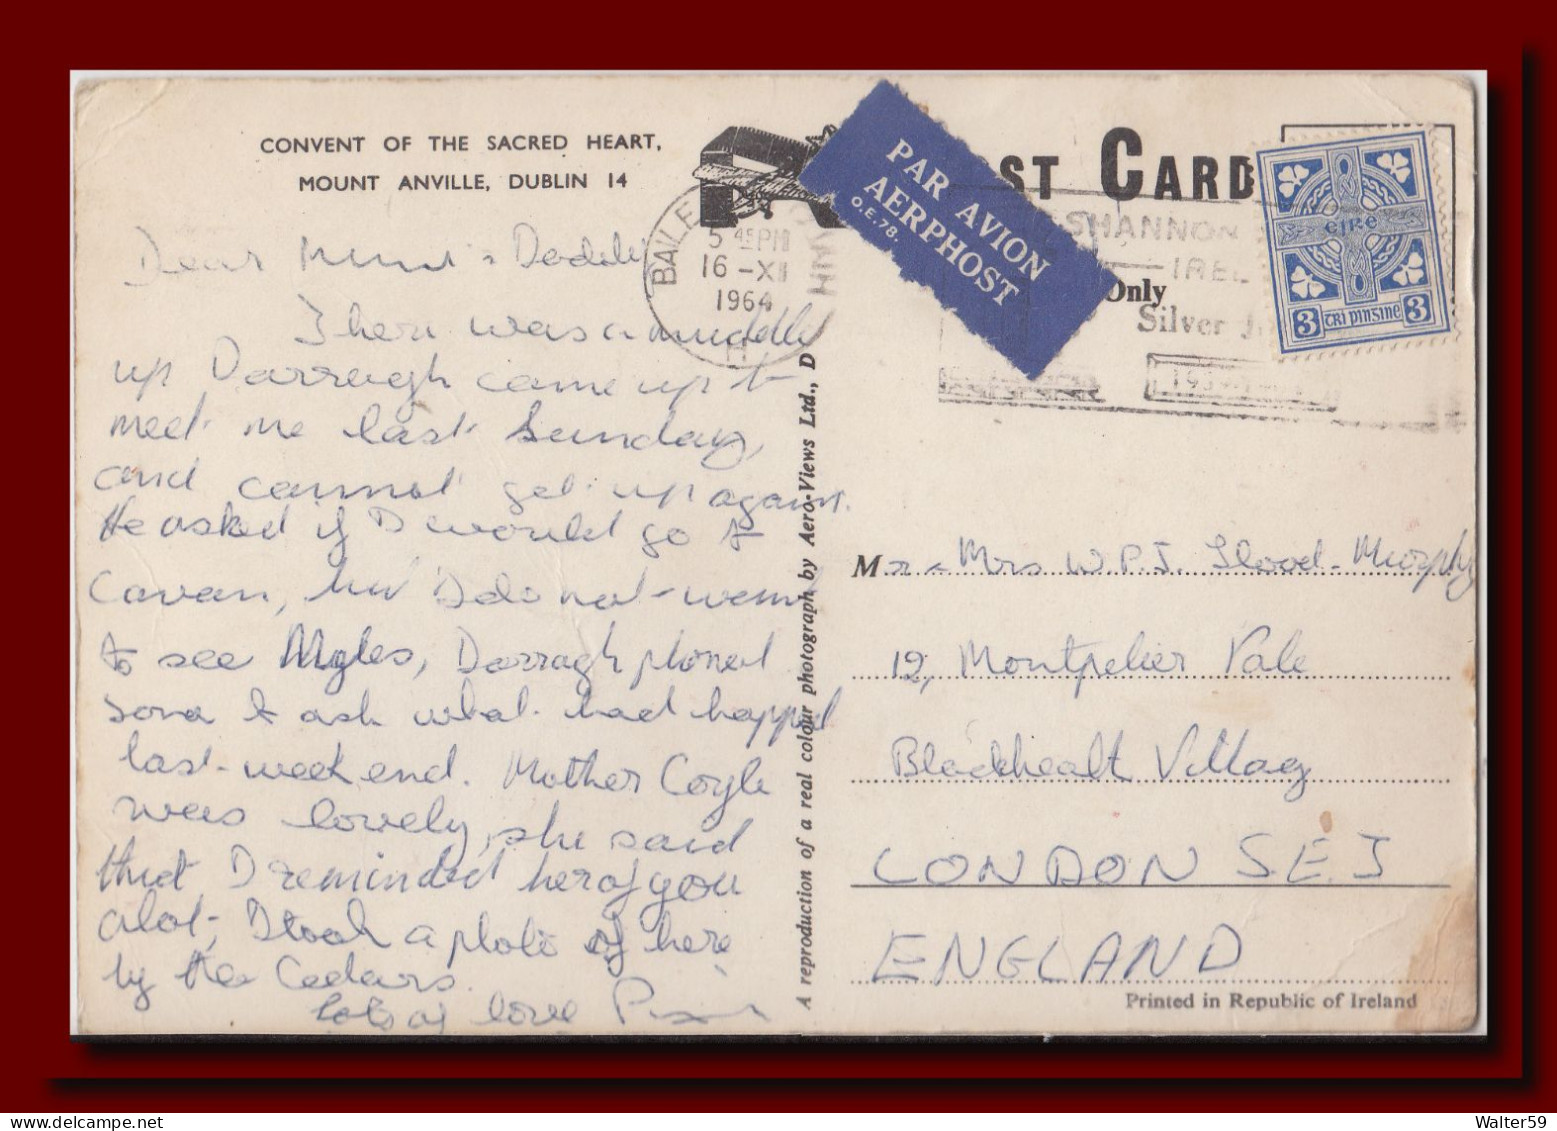 CONVENT OF THE SACRED HEART,
MOUNT ANVILLE, DUBLIN 14
ST CARD
PAR AVION
AERPHOST
O.E.78.
BAILE
5 45 PM
16 - XII
1964
SHANNON
IREL
Only
Silver
éire
3 trí pinsine 3
Dear Mum & Daddy
There was a muddle
up Darragh came up to
meet me last Sunday,
and cannot get up again.
He asked if I would go to
Cavan, but I do not want
to see Myles, Darragh phoned
to ask what had happened
last weekend. Mother Coyle
was lovely, she said
that I reminded her of you
alot, I took a photo of here
by the Cedars.
Lots of love
A reproduction of a real colour photograph by Aero-Views Ltd., D
Mr & Mrs W.P.J. Flood-Murphy
12, Montpelier Vale
Blackheath Village
LONDON S.E.3
ENGLAND
Printed in Republic of Ireland
Walter59